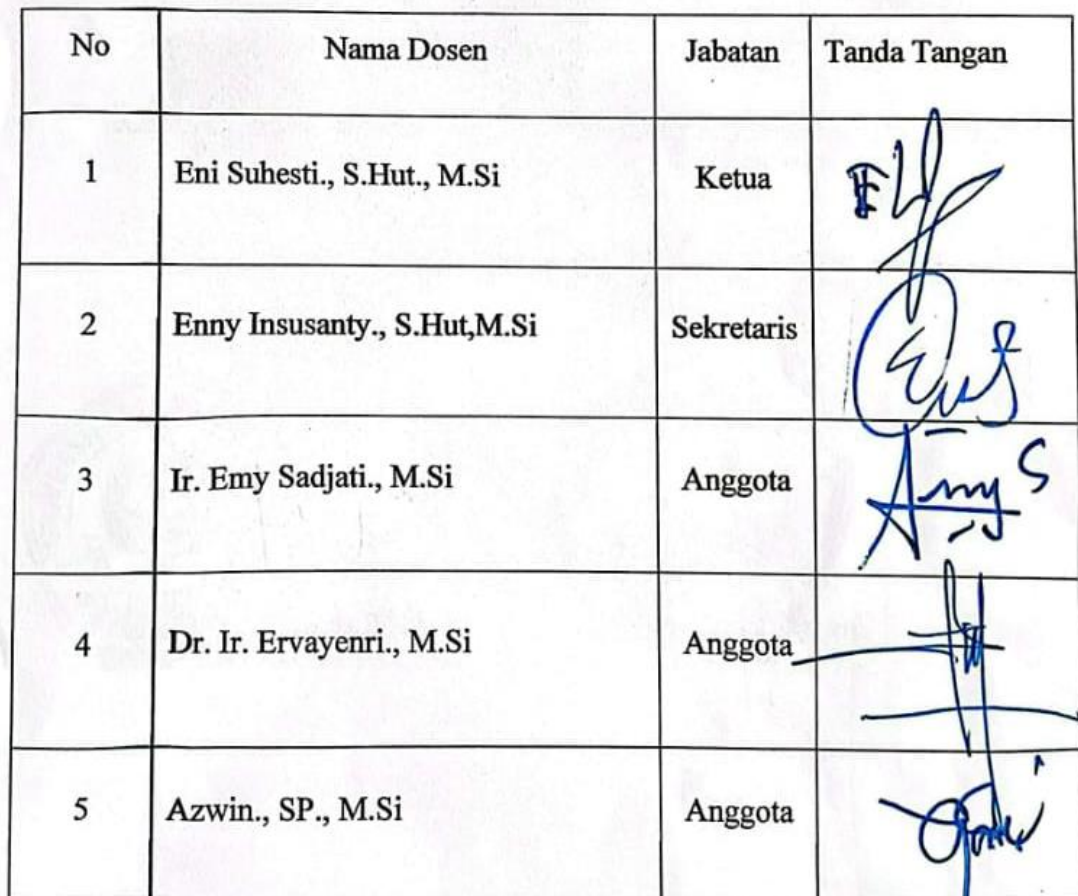 No Nama Dosen Jabatan Tanda Tangan
1 Eni Suhesti., S.Hut., M.Si Ketua
2 Enny Insusanty., S.Hut,M.Si Sekretaris
3 Ir. Emy Sadjati., M.Si Anggota
4 Dr. Ir. Ervayenri., M.Si Anggota
5 Azwin., SP., M.Si Anggota